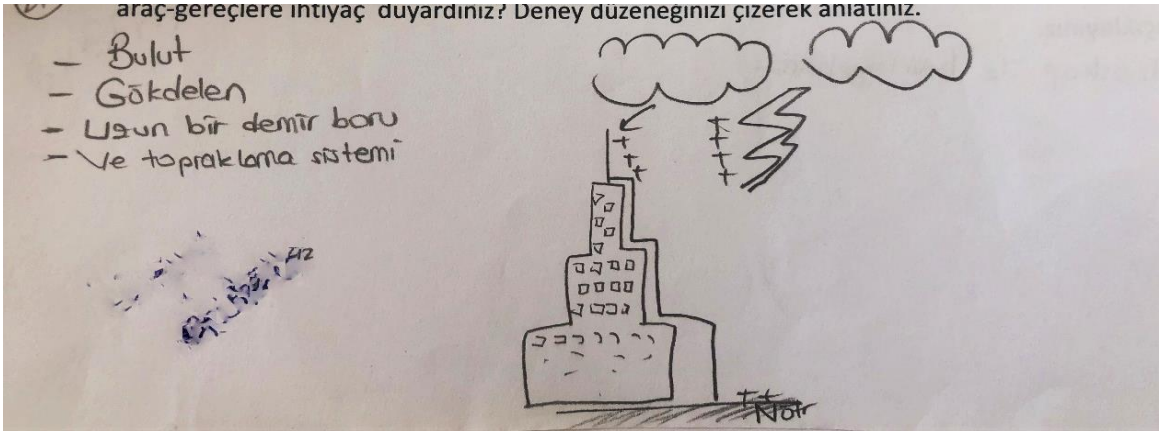 araç-gereçlere ihtiyaç duyardınız? Deney düzeneğinizi çizerek anlatınız.
- Bulut
- Gökdelen
- Uzun bir demir boru
- Ve topraklama sistemi
+
+
+
+
+
+
+
+
+ +
Nötr